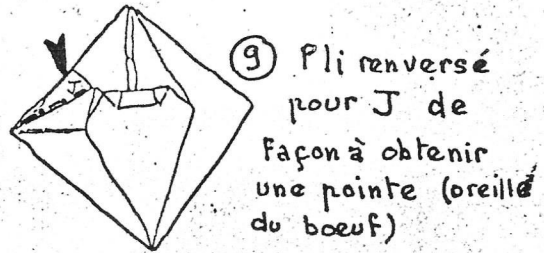 J
⑨ Pli renversé
pour J de
façon à obtenir
une pointe (oreille
du bœuf)